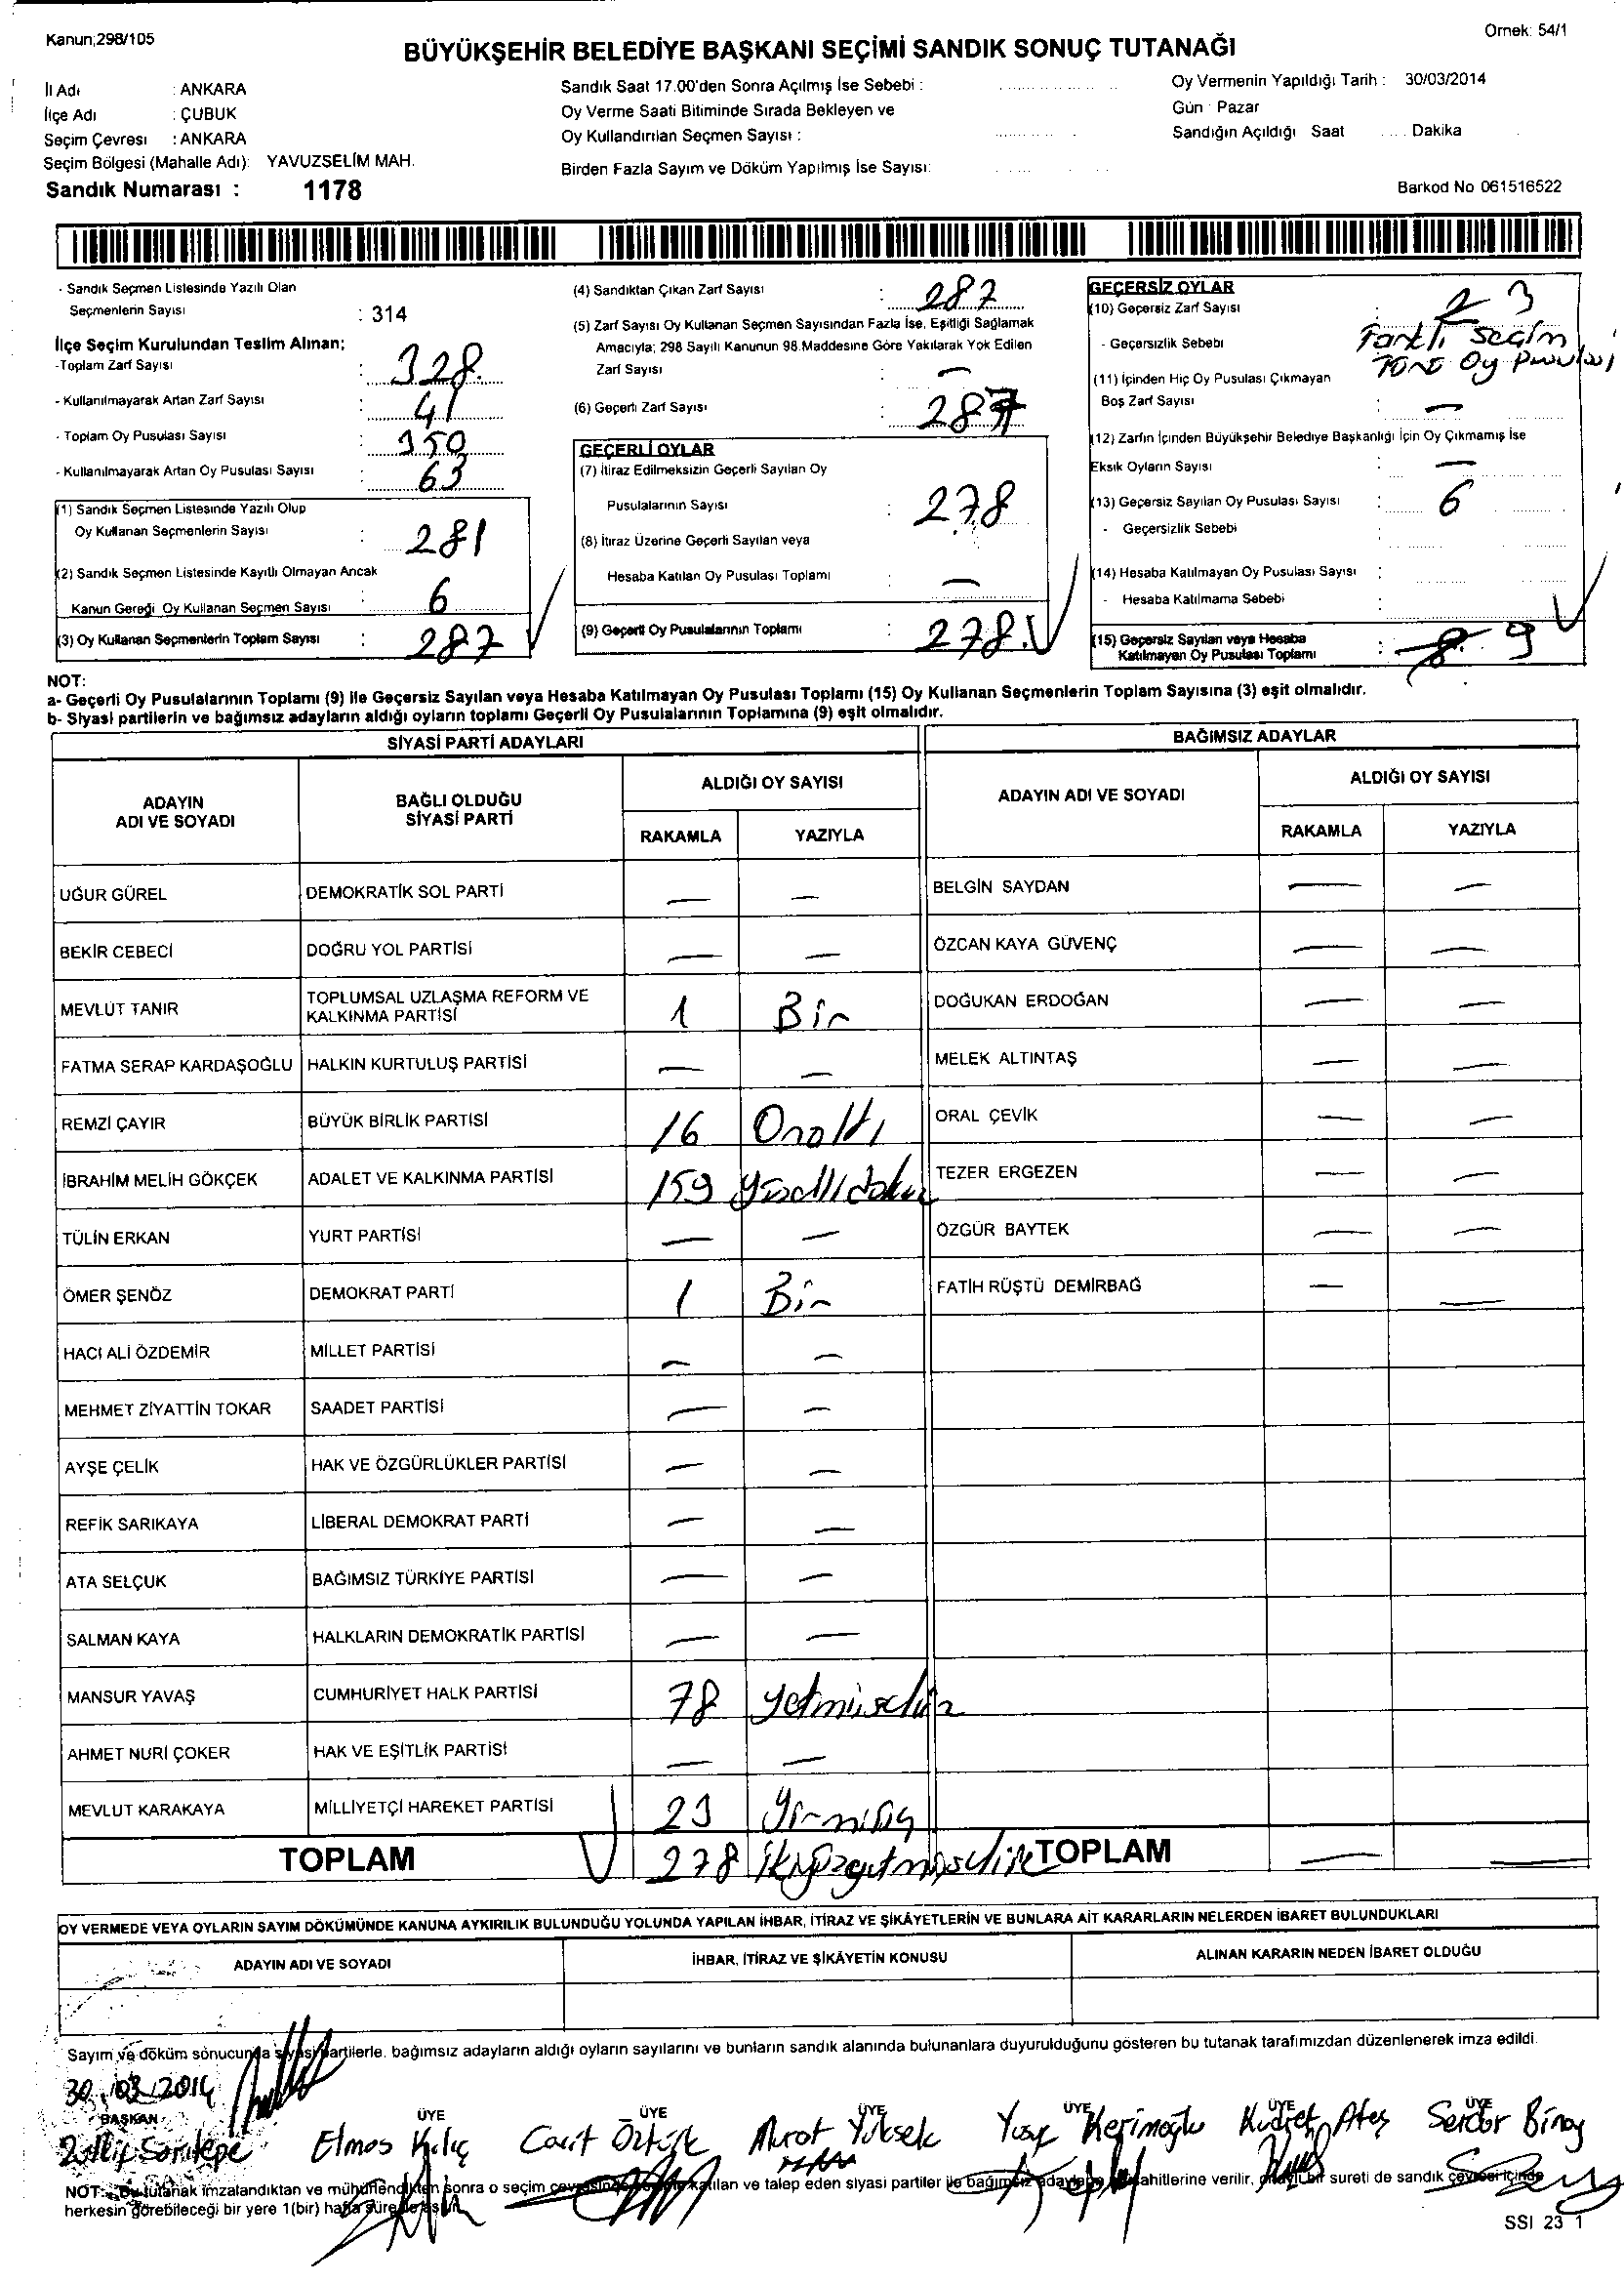 Kanun;298/105
Örnek: 54/1
BÜYÜKŞEHİR BELEDİYE BAŞKANI SEÇİMİ SANDIK SONUÇ TUTANAĞI
İl Adı : ANKARA
İlçe Adı : ÇUBUK
Seçim Çevresi : ANKARA
Seçim Bölgesi (Mahalle Adı): YAVUZSELİM MAH.
Sandık Numarası : 1178
Sandık Saat 17.00'den Sonra Açılmış İse Sebebi :
Oy Verme Saati Bitiminde Sırada Bekleyen ve
Oy Kullandırılan Seçmen Sayısı :
Birden Fazla Sayım ve Döküm Yapılmış İse Sayısı:
Oy Vermenin Yapıldığı Tarih : 30/03/2014
Gün : Pazar
Sandığın Açıldığı Saat .... Dakika
Barkod No 061516522
- Sandık Seçmen Listesinde Yazılı Olan
Seçmenlerin Sayısı : 314
İlçe Seçim Kurulundan Teslim Alınan;
-Toplam Zarf Sayısı : 328
- Kullanılmayarak Artan Zarf Sayısı : 41
- Toplam Oy Pusulası Sayısı : 350
- Kullanılmayarak Artan Oy Pusulası Sayısı : 63
(1) Sandık Seçmen Listesinde Yazılı Olup
Oy Kullanan Seçmenlerin Sayısı : 281
(2) Sandık Seçmen Listesinde Kayıtlı Olmayan Ancak
Kanun Gereği Oy Kullanan Seçmen Sayısı : 6
(3) Oy Kullanan Seçmenlerin Toplam Sayısı : 287
(4) Sandıktan Çıkan Zarf Sayısı : 287
(5) Zarf Sayısı Oy Kullanan Seçmen Sayısından Fazla İse, Eşitliği Sağlamak
Amacıyla; 298 Sayılı Kanunun 98.Maddesine Göre Yakılarak Yok Edilen
Zarf Sayısı : —
(6) Geçerli Zarf Sayısı : 287
GEÇERLİ OYLAR
(7) İtiraz Edilmeksizin Geçerli Sayılan Oy
Pusulalarının Sayısı : 278
(8) İtiraz Üzerine Geçerli Sayılan veya
Hesaba Katılan Oy Pusulası Toplamı : —
(9) Geçerli Oy Pusulalarının Toplamı : 278
GEÇERSİZ OYLAR
(10) Geçersiz Zarf Sayısı : 2 3
- Geçersizlik Sebebi Farklı Seçim
Türü Oy Pusulası
(11) İçinden Hiç Oy Pusulası Çıkmayan
Boş Zarf Sayısı : —
(12) Zarfın İçinden Büyükşehir Belediye Başkanlığı İçin Oy Çıkmamış İse
Eksik Oyların Sayısı : —
(13) Geçersiz Sayılan Oy Pusulası Sayısı : 6
- Geçersizlik Sebebi
(14) Hesaba Katılmayan Oy Pusulası Sayısı :
- Hesaba Katılmama Sebebi :
(15) Geçersiz Sayılan veya Hesaba
Katılmayan Oy Pusulası Toplamı : 8 9
NOT:
a- Geçerli Oy Pusulalarının Toplamı (9) ile Geçersiz Sayılan veya Hesaba Katılmayan Oy Pusulası Toplamı (15) Oy Kullanan Seçmenlerin Toplam Sayısına (3) eşit olmalıdır.
b- Siyasi partilerin ve bağımsız adayların aldığı oyların toplamı Geçerli Oy Pusulalarının Toplamına (9) eşit olmalıdır.
SİYASİ PARTİ ADAYLARI
BAĞIMSIZ ADAYLAR
ADAYIN
ADI VE SOYADI
BAĞLI OLDUĞU
SİYASİ PARTİ
ALDIĞI OY SAYISI
RAKAMLA YAZIYLA
ADAYIN ADI VE SOYADI
ALDIĞI OY SAYISI
RAKAMLA YAZIYLA
UĞUR GÜREL DEMOKRATİK SOL PARTİ — — BELGİN SAYDAN — —
BEKİR CEBECİ DOĞRU YOL PARTİSİ — — ÖZCAN KAYA GÜVENÇ — —
MEVLÜT TANIR TOPLUMSAL UZLAŞMA REFORM VE KALKINMA PARTİSİ 1 Bir DOĞUKAN ERDOĞAN — —
FATMA SERAP KARDAŞOĞLU HALKIN KURTULUŞ PARTİSİ — — MELEK ALTINTAŞ — —
REMZİ ÇAYIR BÜYÜK BİRLİK PARTİSİ 16 Onaltı ORAL ÇEVİK — —
İBRAHİM MELİH GÖKÇEK ADALET VE KALKINMA PARTİSİ 159 TEZER ERGEZEN — —
TÜLİN ERKAN YURT PARTİSİ — — ÖZGÜR BAYTEK — —
ÖMER ŞENÖZ DEMOKRAT PARTİ 1 Bir FATİH RÜŞTÜ DEMİRBAĞ — —
HACI ALİ ÖZDEMİR MİLLET PARTİSİ — —
MEHMET ZİYATTİN TOKAR SAADET PARTİSİ — —
AYŞE ÇELİK HAK VE ÖZGÜRLÜKLER PARTİSİ — —
REFİK SARIKAYA LİBERAL DEMOKRAT PARTİ — —
ATA SELÇUK BAĞIMSIZ TÜRKİYE PARTİSİ — —
SALMAN KAYA HALKLARIN DEMOKRATİK PARTİSİ — —
MANSUR YAVAŞ CUMHURİYET HALK PARTİSİ 78 Yetmişsekiz
AHMET NURİ ÇOKER HAK VE EŞİTLİK PARTİSİ — —
MEVLUT KARAKAYA MİLLİYETÇİ HAREKET PARTİSİ 23 Yirmiüç
TOPLAM 278 ikiyüzyetmişsekiz TOPLAM — —
OY VERMEDE VEYA OYLARIN SAYIM DÖKÜMÜNDE KANUNA AYKIRILIK BULUNDUĞU YOLUNDA YAPILAN İHBAR, İTİRAZ VE ŞİKÂYETLERİN VE BUNLARA AİT KARARLARIN NELERDEN İBARET BULUNDUKLARI
ADAYIN ADI VE SOYADI İHBAR, İTİRAZ VE ŞİKÂYETİN KONUSU ALINAN KARARIN NEDEN İBARET OLDUĞU
Sayım ve döküm sonucunda siyasi partilerle, bağımsız adayların aldığı oyların sayılarını ve bunların sandık alanında bulunanlara duyurulduğunu gösteren bu tutanak tarafımızdan düzenlenerek imza edildi.
30.03.2014
BAŞKAN ÜYE ÜYE ÜYE ÜYE ÜYE ÜYE
Sarıtepe Elmas Kılıç Cavit Öztürk Murat Yüksek Yusuf Kerimoğlu Kudret Ateş Serdar Binay
NOT: Bu tutanak imzalandıktan ve mühürlendikten sonra o seçim çevresinde seçime katılan ve talep eden siyasi partiler ile bağımsız adayların müşahitlerine verilir, onaylı bir sureti de sandık çevresi içinde
herkesin görebileceği bir yere 1(bir) hafta süreyle asılır.
SSI 23 1